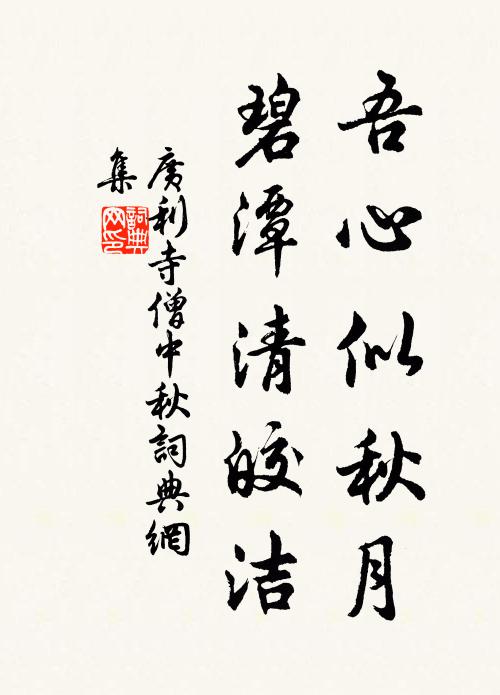 吾心似秋月
碧潭清皎洁
廣利寺僧中秋詞典網
集
詞典
网印